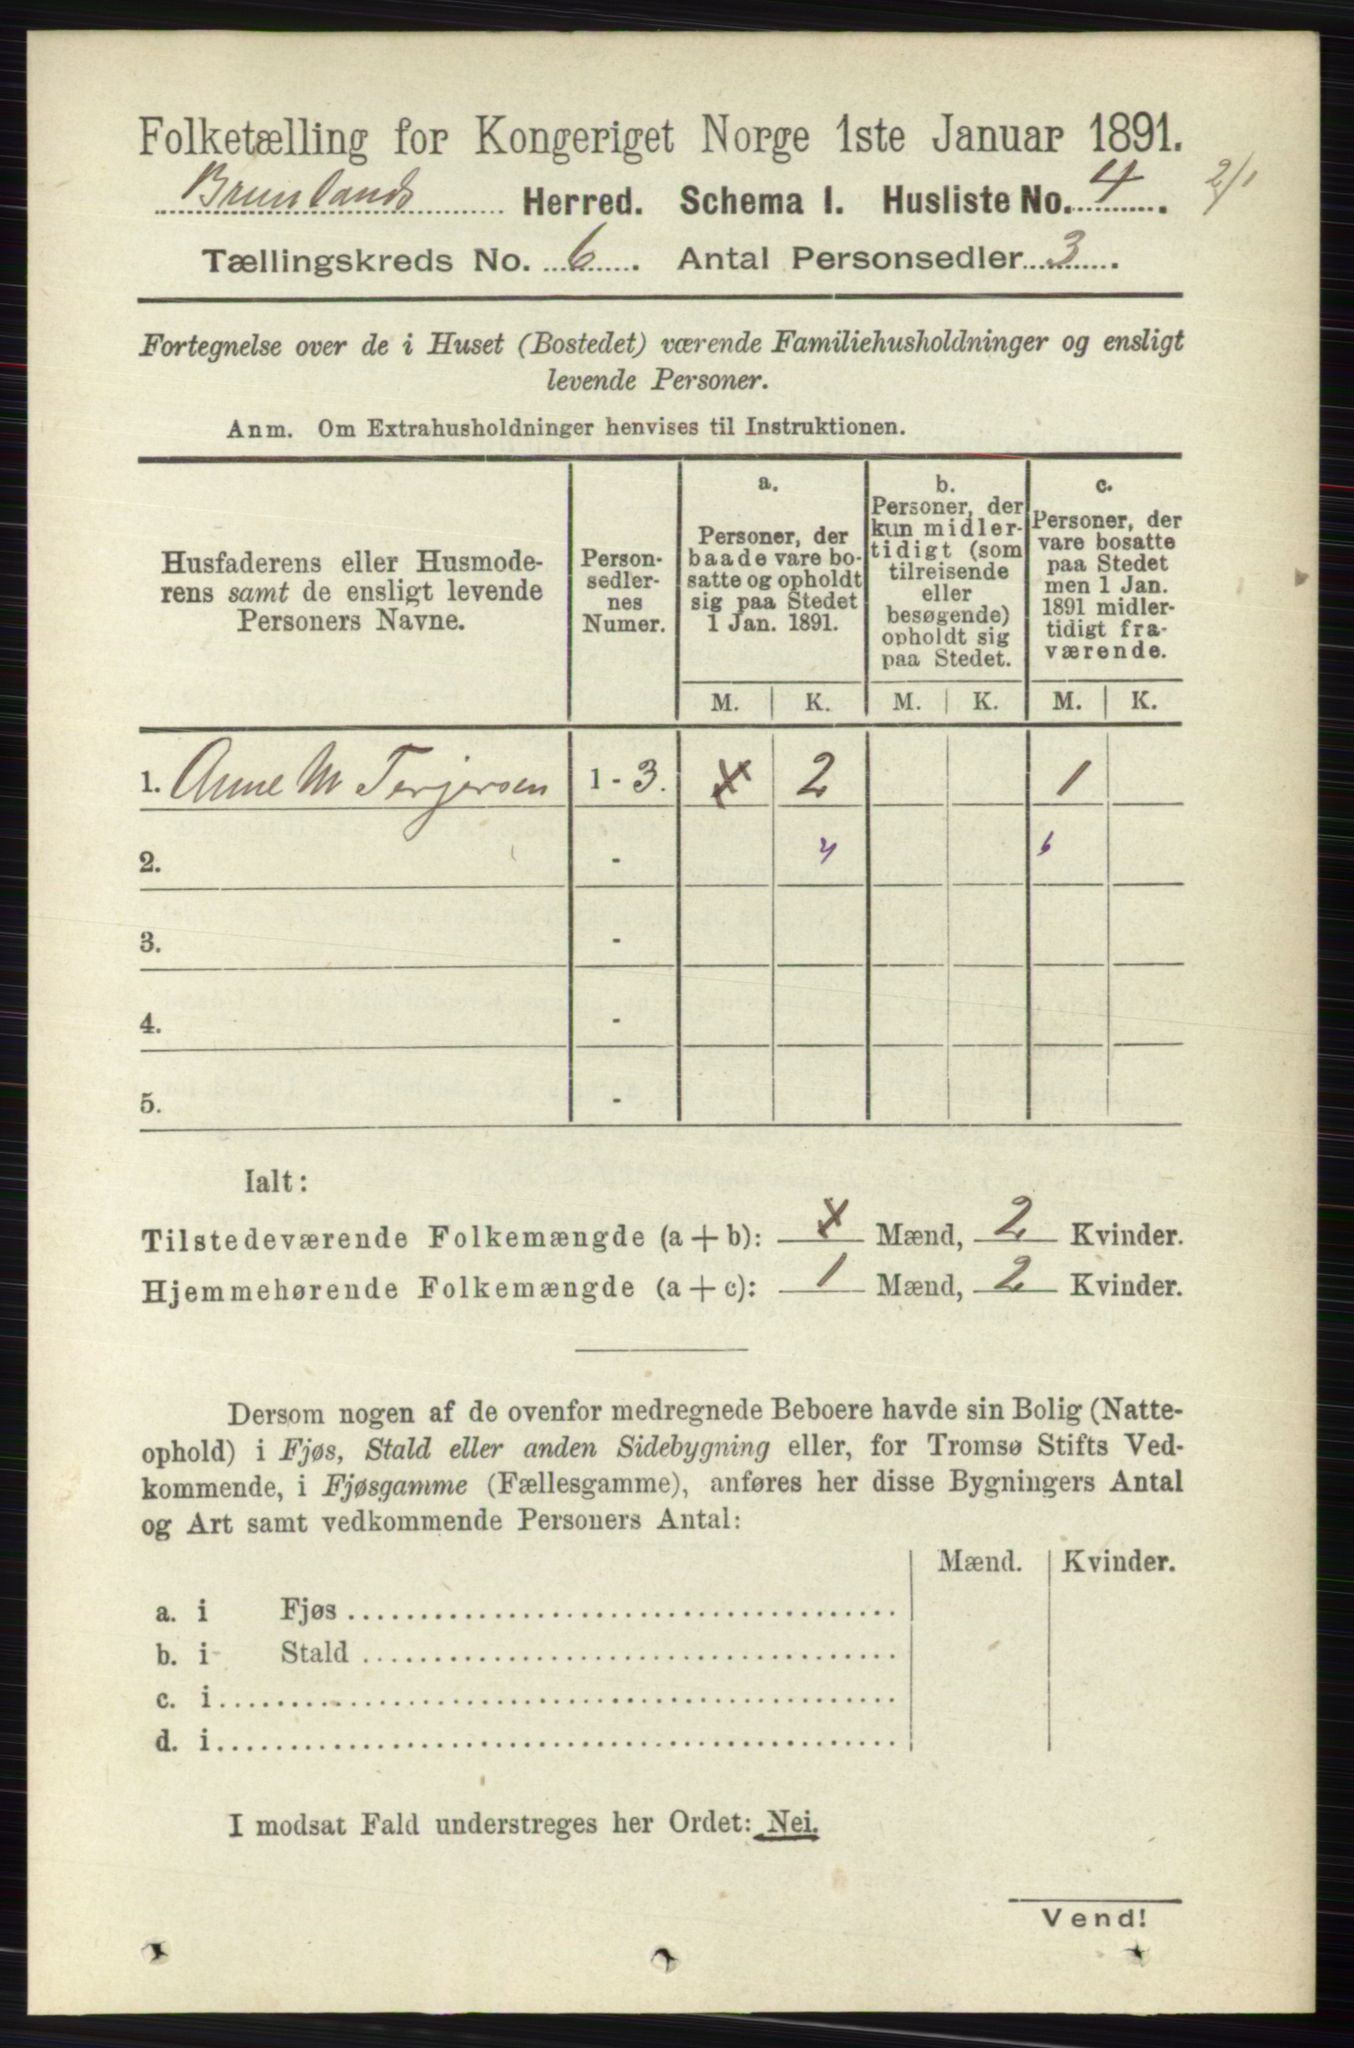 Folketælling for Kongeriget Norge 1ste Januar 1891.
Brunlands Herred. Schema I. Husliste No. 4. 2/1
Tællingskreds No. 6. Antal Personsedler 3.
Fortegnelse over de i Huset (Bostedet) værende Familiehusholdninger og ensligt
levende Personer.
Anm. Om Extrahusholdninger henvises til Instruktionen.
Husfaderens eller Husmode-
rens samt de ensligt levende
Personers Navne.
Person-
sedler-
nes
Numer.
a.
Personer, der
baade vare bo-
satte og opholdt
sig paa Stedet
1 Jan. 1891.
b.
Personer, der
kun midler-
tidigt (som
tilreisende
eller
besøgende)
opholdt sig
paa Stedet.
c.
Personer, der
vare bosatte
paa Stedet
men 1 Jan.
1891 midler-
tidigt fra-
værende.
M. K. M. K. M. K.
1. Anne M Terjersen 1 - 3. x 2 1
2. -
3. -
4. -
5. -
Ialt:
Tilstedeværende Folkemængde (a + b): x Mænd, 2 Kvinder.
Hjemmehørende Folkemængde (a + c): 1 Mænd, 2 Kvinder.
Dersom nogen af de ovenfor medregnede Beboere havde sin Bolig (Natte-
ophold) i Fjøs, Stald eller anden Sidebygning eller, for Tromsø Stifts Ved-
kommende, i Fjøsgamme (Fællesgamme), anføres her disse Bygningers Antal
og Art samt vedkommende Personers Antal:
Mænd. Kvinder.
a. i Fjøs
b. i Stald
c. i
d. i
I modsat Fald understreges her Ordet: Nei.
Vend!